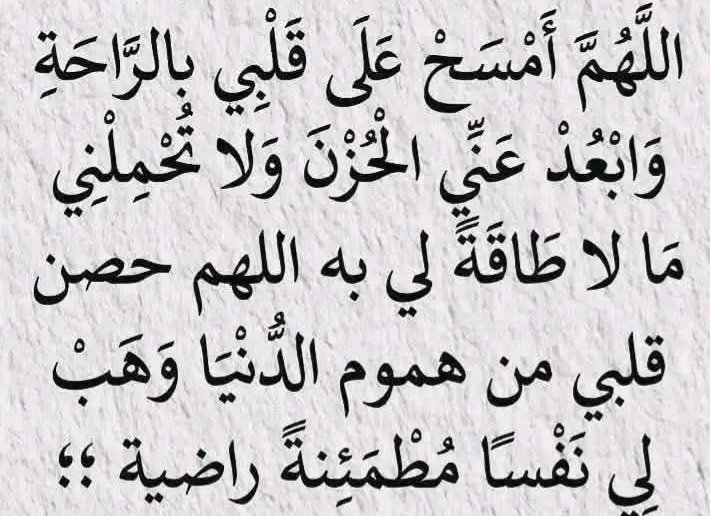 اللَّهُمَّ أَمْسَحْ عَلَى قَلْبِي بِالرَّاحَةِ
وَابْعُدْ عَنِّي الْحُزْنَ وَلا تُحْمِلْنِي
مَا لا طَاقَةً لي به اللهم حصن
قلبي من هموم الدُّنْيَا وَهَبْ
لِي نَفْسًا مُطْمَئِنةً راضية ؛؛